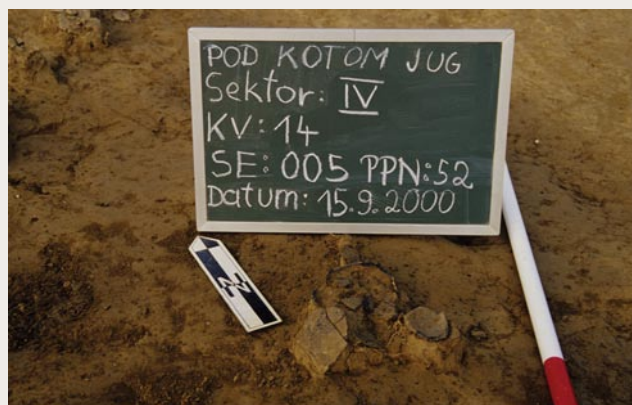 POD KOTOM JUG
Sektor: IV
KV: 14
SE: 005 PPN: 52
Datum: 15.9.2000
N